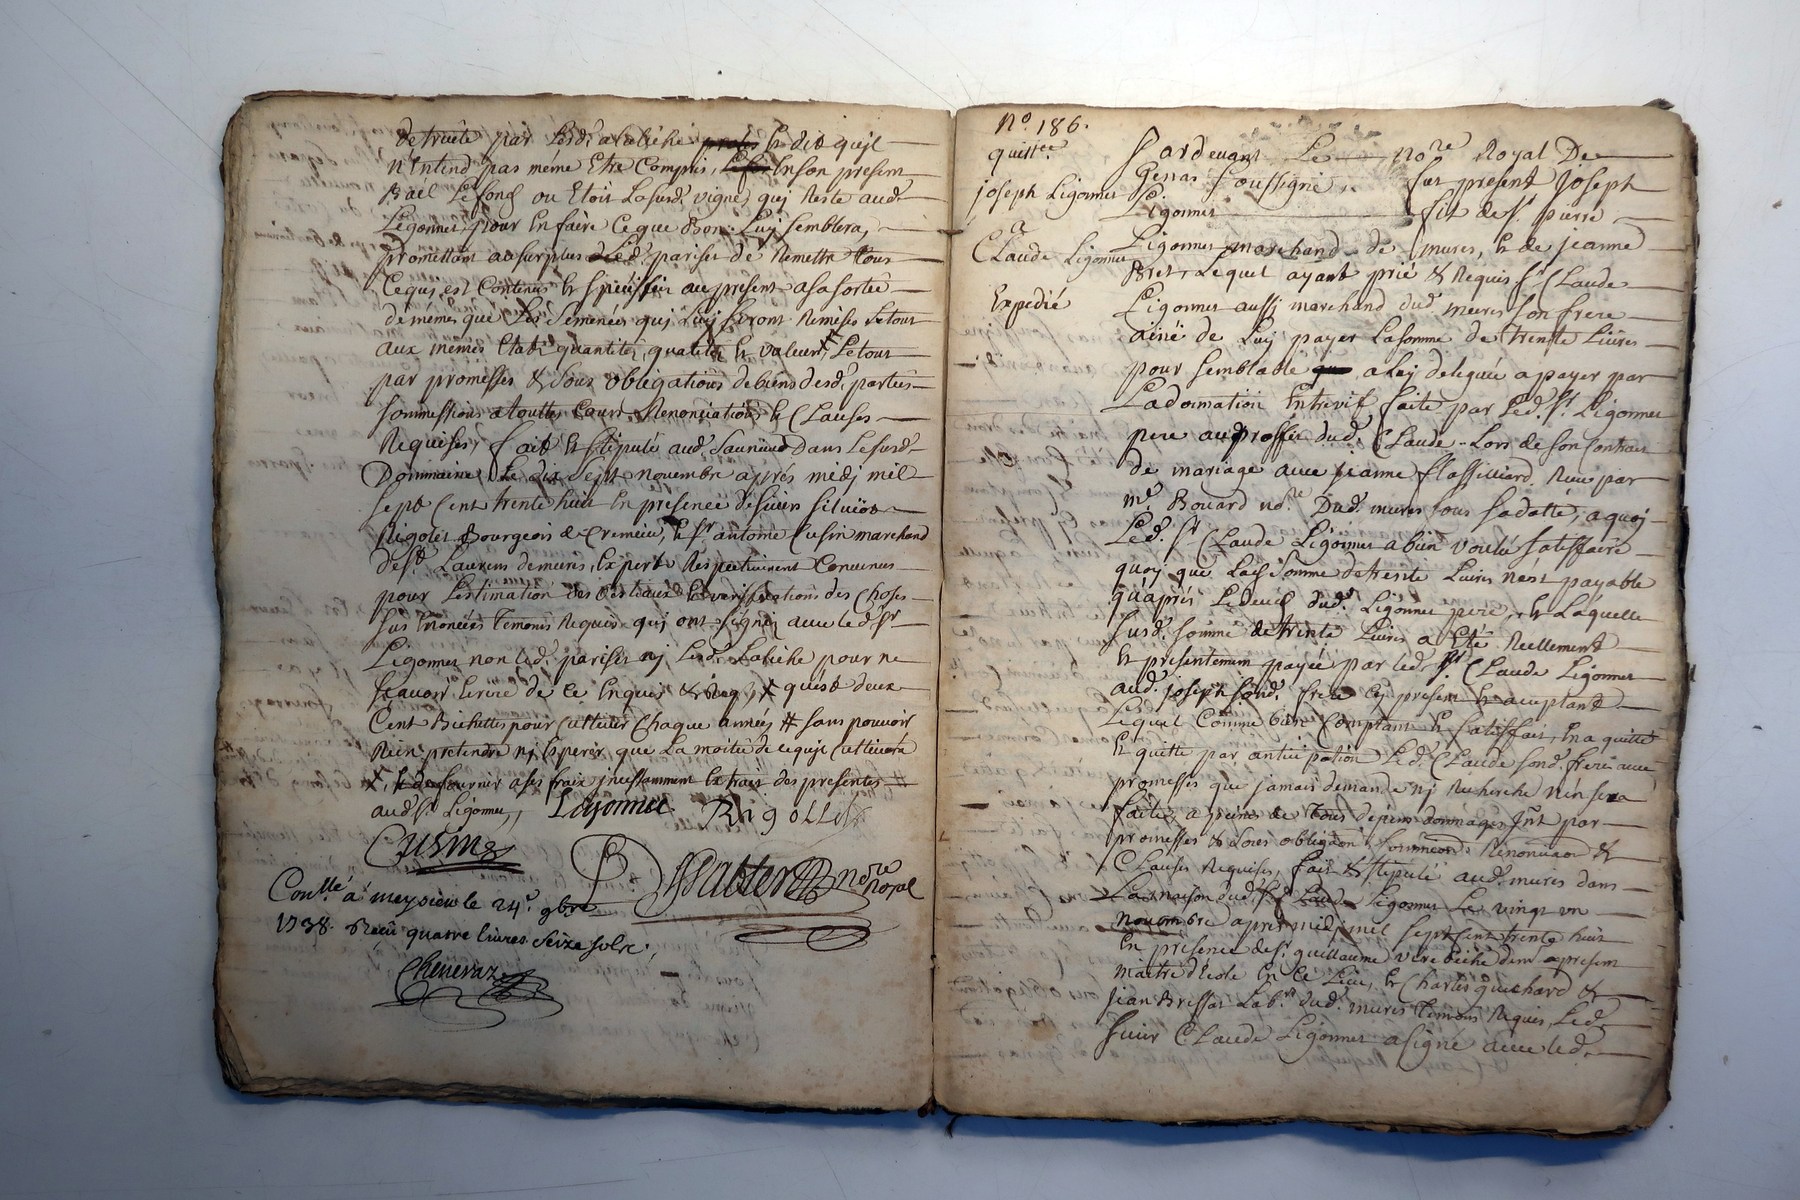 detruitte par led. Labiche et dit qu'jl
n'Entend pas même Etre Compris, En son present
Bail Le fond ou Etoit La susd. vigne, quj Reste aud.
Ligonnet, pour En faire Ce que Bon Luj Semblera,
promettant au surplus Led. pariset de Remettre tous
Ce quj est Contenus Et Speciffiés au present a sa sortie
de mémes que Les Semences quj Luj seront Remeses Le tout
aux mémes Etats quantités, qualités Et valeurs, Le tout
par promesses & sous obligations de biens desd. parties
soummissions a toutte Cours Renonciations Et Clauses
Requises, fait Et stipulé aud. dans Le susd.
Dommaine Le dix sept novembre aprés midj mil
sept Cent trente huit En presence de sieur
Rigolet Bourgeois de Cremieu, Et Sr. antoine Cusin marchand
de St. Laurens de mures, Experts Respectivement Convenus
pour L'estimation des Bestiaux Et verifications des Choses
sus Enoncées temoins Requis quj ont signés avec led. Sr.
Ligonnet non led. pariset nj Led. Labiche pour ne
sçavoir Ecrire de Ce Enquis & Req. X qu'est deux
Cent Bichettes pour Cultiver Chaque année, # sans pouvoir
Rien pretendre nj Esperer que La moitié de ce qu'jl Cultivera
X, Et de fournir a ses fraix jncessamment Extrait des presentes #
aud. Sr. Ligonnet, Ligonnet Rigollet
Cusin
nore Royal
Conllé. à meysieu le 24e. 9bre
1738. Reçu quatre livres seize sols.
Chenevaz
No. 186.
quittce.
joseph Ligonnet
a
Claude Ligonnet
Expedié
Pardevant Le nore Royal De
Genas soussigné fut present Joseph
Ligonnet fils de Sr. pierre
Ligonnet marchand de mures, Et de jeanne
Bret, Lequel ayant prié & Requis Sr. Claude
Ligonnet aussj marchand dud. mures son frere
ainé de Luj payer La somme de trente Livres
pour semblable a luj deleguée a payer par
La donnation Entrevif faite par Led. Sr. Ligonnet
pere au proffit dud. Claude Lors de son Contrait
de mariage avec jeanne Reçu par
me. Bouard nore. Dud. mures sous sa datte, a quoj
Led. Sr Claude Ligonnet a bien voulu satisffaire
quoy que La somme de trente Livres n'est payable
qu'aprés Le deceds dud. Ligonnet pere, Et Laquelle
susd. somme de trente Livres a Eté Reellement
Et presentement payée par led. Sr Claude Ligonnet
aud. joseph sond. frere Cy present Et acceptant
Lequel Comme bien Comptant Et satisffait, En a quitté
Et quitte par anticipation Led. Claude sond. frere avec
promesses que jamais demande nj Recherche n'en sera
faite, a peine de tous depens dommages Jnt. par
promesses & sous obligaon soummaons Renonciaons &
Clauses Requises, fait & stipulé aud. mures dans
La maison dud. Sr. Claude Ligonnet Le vingt un
novembre aprés midj mil sept Cent trente huit
En presence de Sr. guillaume a present
maitre d'Ecole En Ce Lieu, Et Charles guichard &
jean Brissat Labr. dud. mures temoins Requis, Led.
sieur Claude Ligonnet a signé avec led.